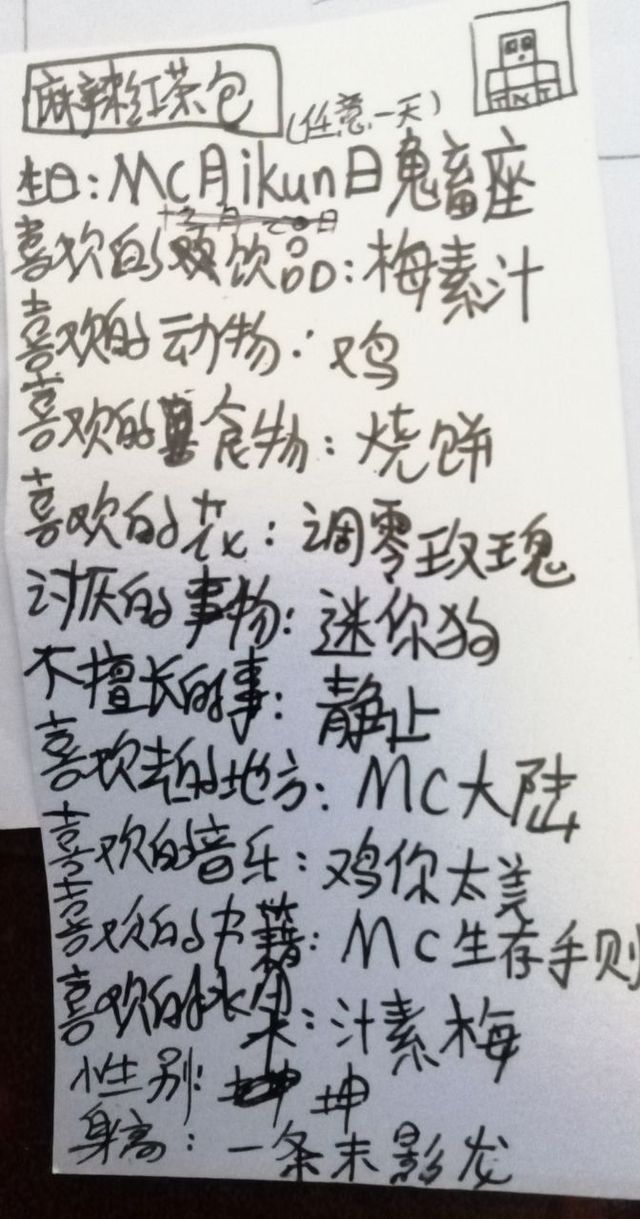 麻辣红茶包
TNT
(任意一天)
生日:Mc月ikun日鬼畜座
喜欢的饮品:梅素汁
喜欢的动物:鸡
喜欢的食物:烧饼
喜欢的花:调零玫瑰
讨厌的事物:迷你狗
不擅长的事:静止
喜欢去的地方:MC大陆
喜欢的音乐:鸡你太美
喜欢的书籍:MC生存手则
喜欢的水果:汁素梅
性别:坤
身高:一条末影龙